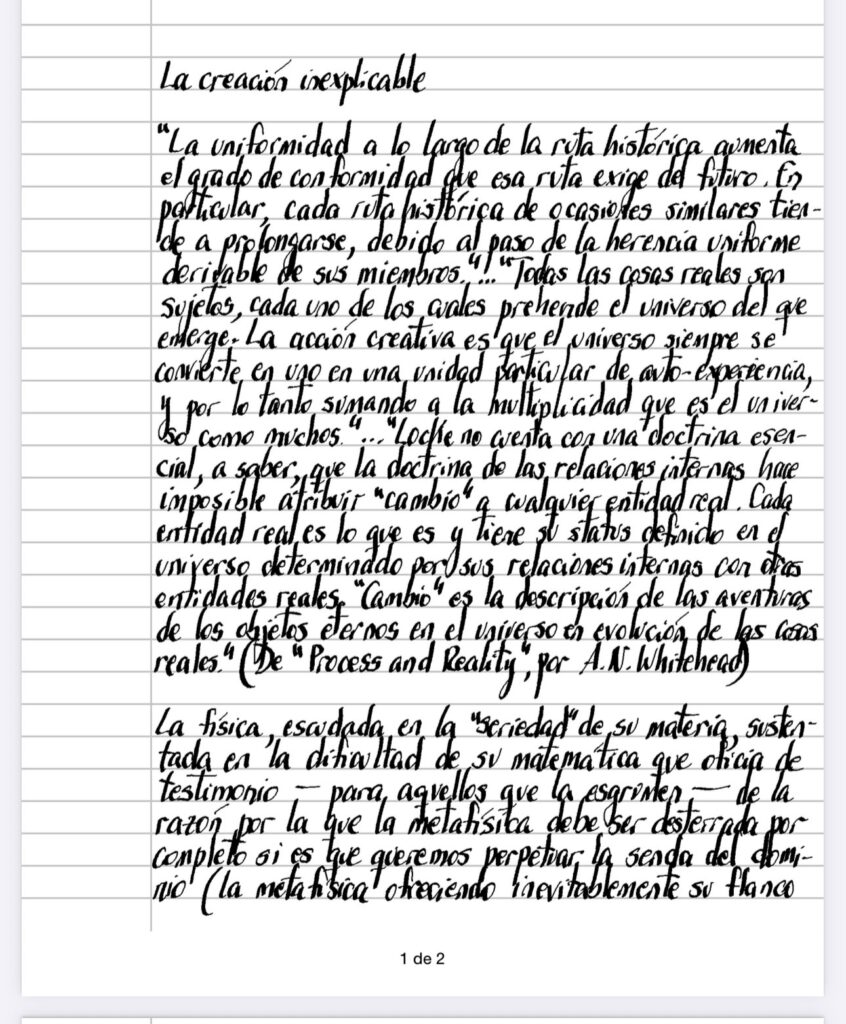 La creación inexplicable
"La uniformidad a lo largo de la ruta histórica aumenta
el grado de conformidad que esa ruta exige del futuro. En
particular, cada ruta histórica de ocasiones similares tien-
de a prolongarse, debido al paso de la herencia uniforme
derivable de sus miembros."..."Todas las cosas reales son
sujetos, cada uno de los cuales prehende el universo del que
emerge. La acción creativa es que el universo siempre se
convierte en uno en una unidad particular de auto-experiencia,
y por lo tanto sumando a la multiplicidad que es el univer-
so como muchos."..."Locke no cuenta con una doctrina esen-
cial, a saber, que la doctrina de las relaciones internas hace
imposible atribuir "cambio" a cualquier entidad real. Cada
entidad real es lo que es y tiene su status definido en el
universo determinado por sus relaciones internas con otras
entidades reales. "Cambio" es la descripción de las aventuras
de los objetos eternos en el universo en evolución de las cosas
reales." (De "Process and Reality", por A.N. Whitehead)
La física, escudada en la "seriedad" de su materia, susten-
tada en la dificultad de su matemática que oficia de
testimonio — para aquellos que la esgrimen — de la
razón por la que la metafísica debe ser desterrada por
completo si es que queremos perpetuar la senda del domi-
nio (la metafísica ofreciendo inevitablemente su flanco
1 de 2